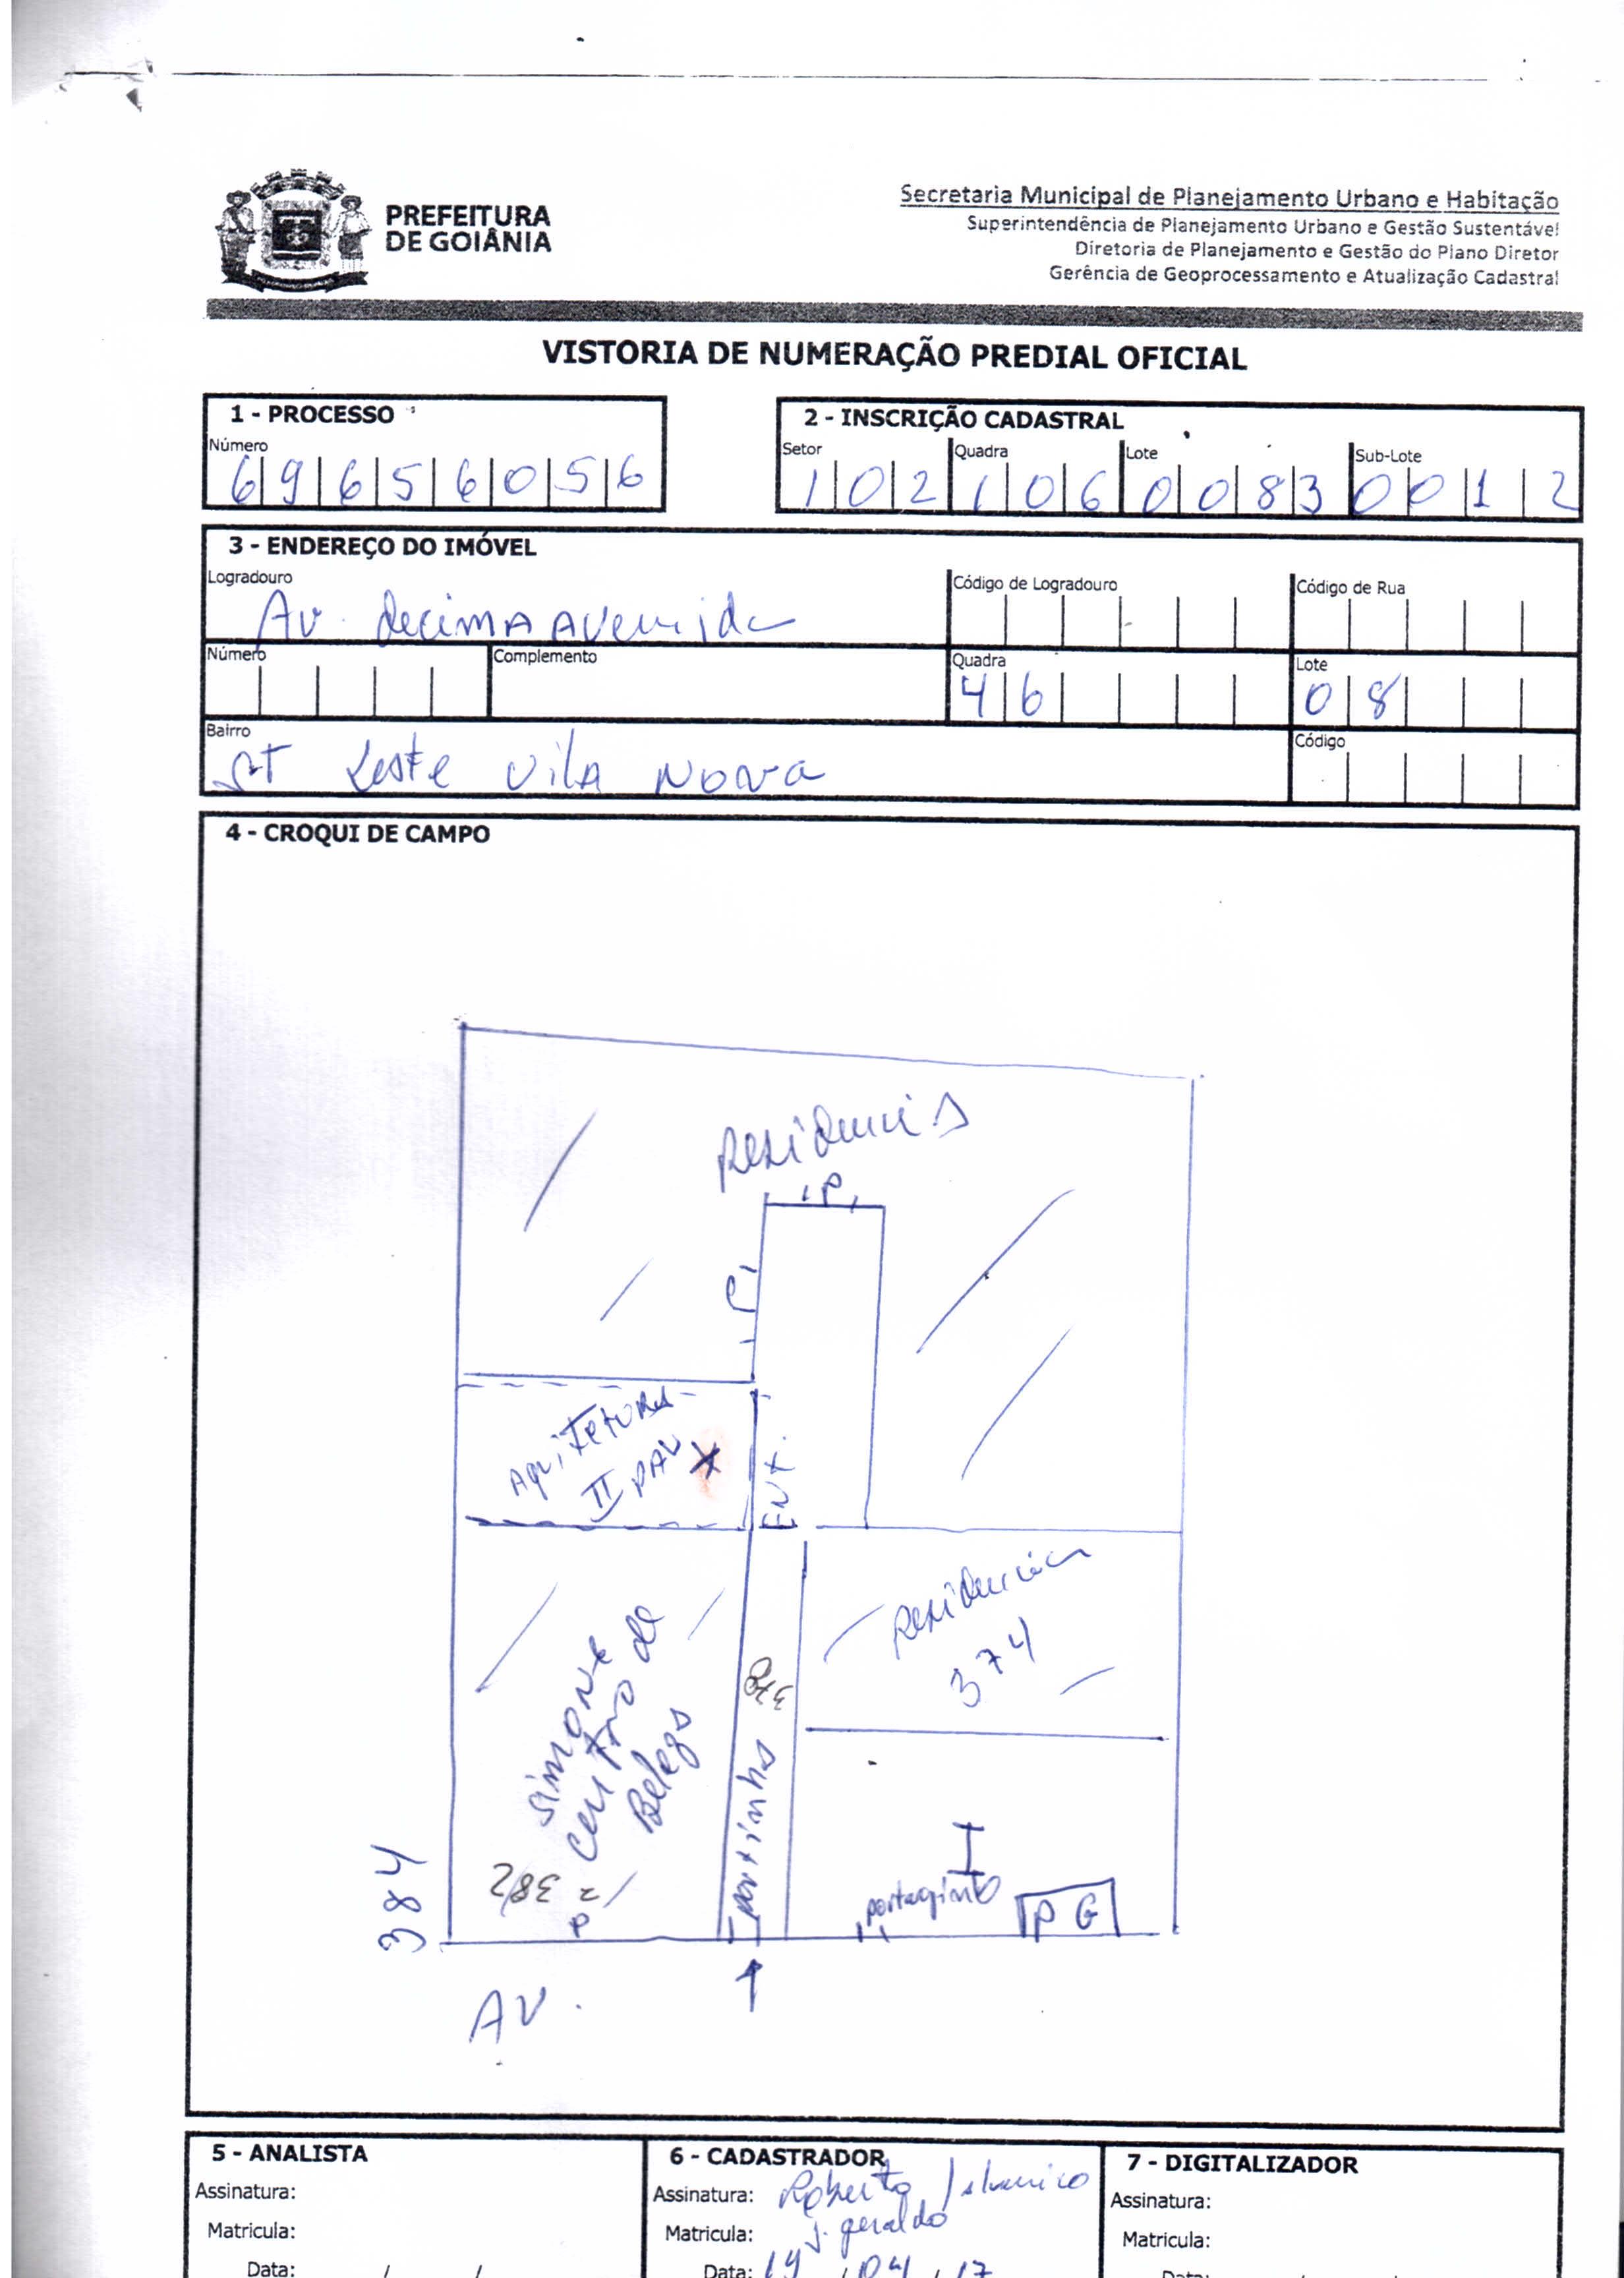 PREFEITURA
DE GOIÂNIA
Secretaria Municipal de Planejamento Urbano e Habitação
Superintendência de Planejamento Urbano e Gestão Sustentável
Diretoria de Planejamento e Gestão do Plano Diretor
Gerência de Geoprocessamento e Atualização Cadastral
VISTORIA DE NUMERAÇÃO PREDIAL OFICIAL
1 - PROCESSO
Número
69656056
2 - INSCRIÇÃO CADASTRAL
Setor Quadra Lote Sub-Lote
102 106 0083 0012
3 - ENDEREÇO DO IMÓVEL
Logradouro Código de Logradouro Código de Rua
Av. Decima Avenida
Número Complemento Quadra Lote
46 08
Bairro Código
ST Leste Vila Nova
4 - CROQUI DE CAMPO
Residencia
P
P
Aquitetura
II PAV
X
ENT.
Residencia
374
378
Simone
Centro de
Beleza
portinho
I
384
382
P
portaozinho
P G
AV.
5 - ANALISTA
Assinatura:
Matricula:
Data: / /
6 - CADASTRADOR
Assinatura: Roberto /
Matricula: J. geraldo
Data: 19 / 04 / 17
7 - DIGITALIZADOR
Assinatura:
Matricula:
Data: